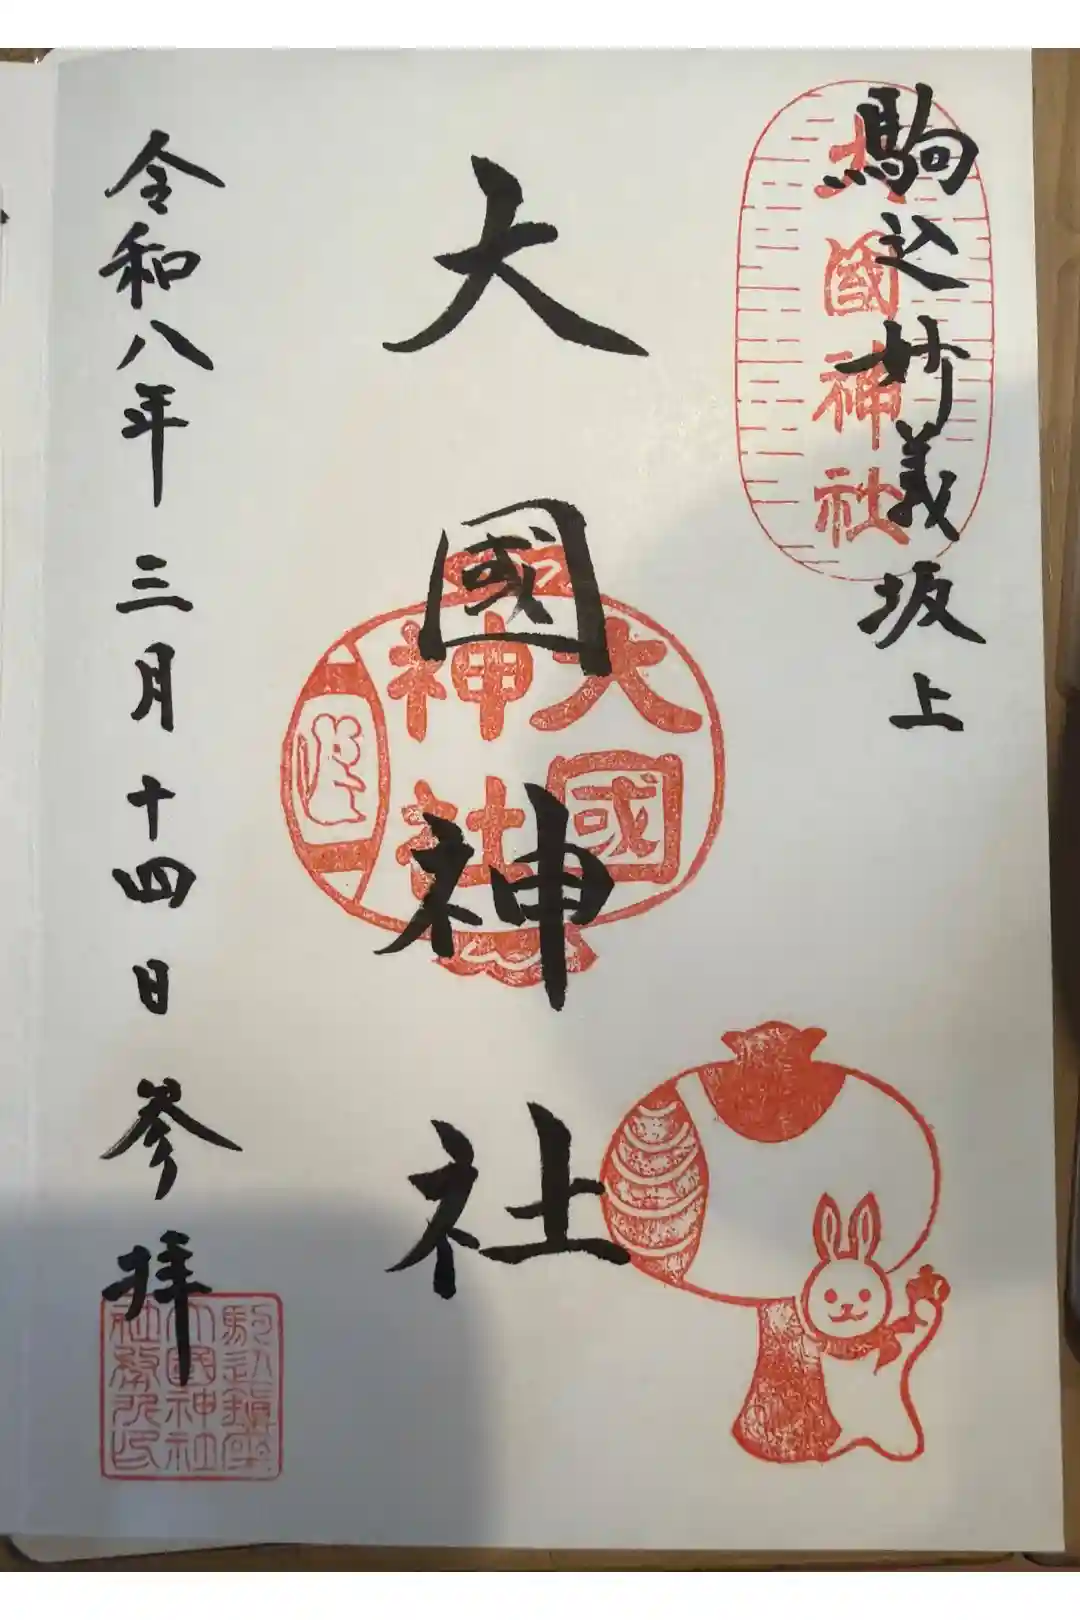 駒込妙義坂上
大國神社
大國神社
大國神社
令和八年三月十四日参拝
駒込鎮座
大國神社
社務所印